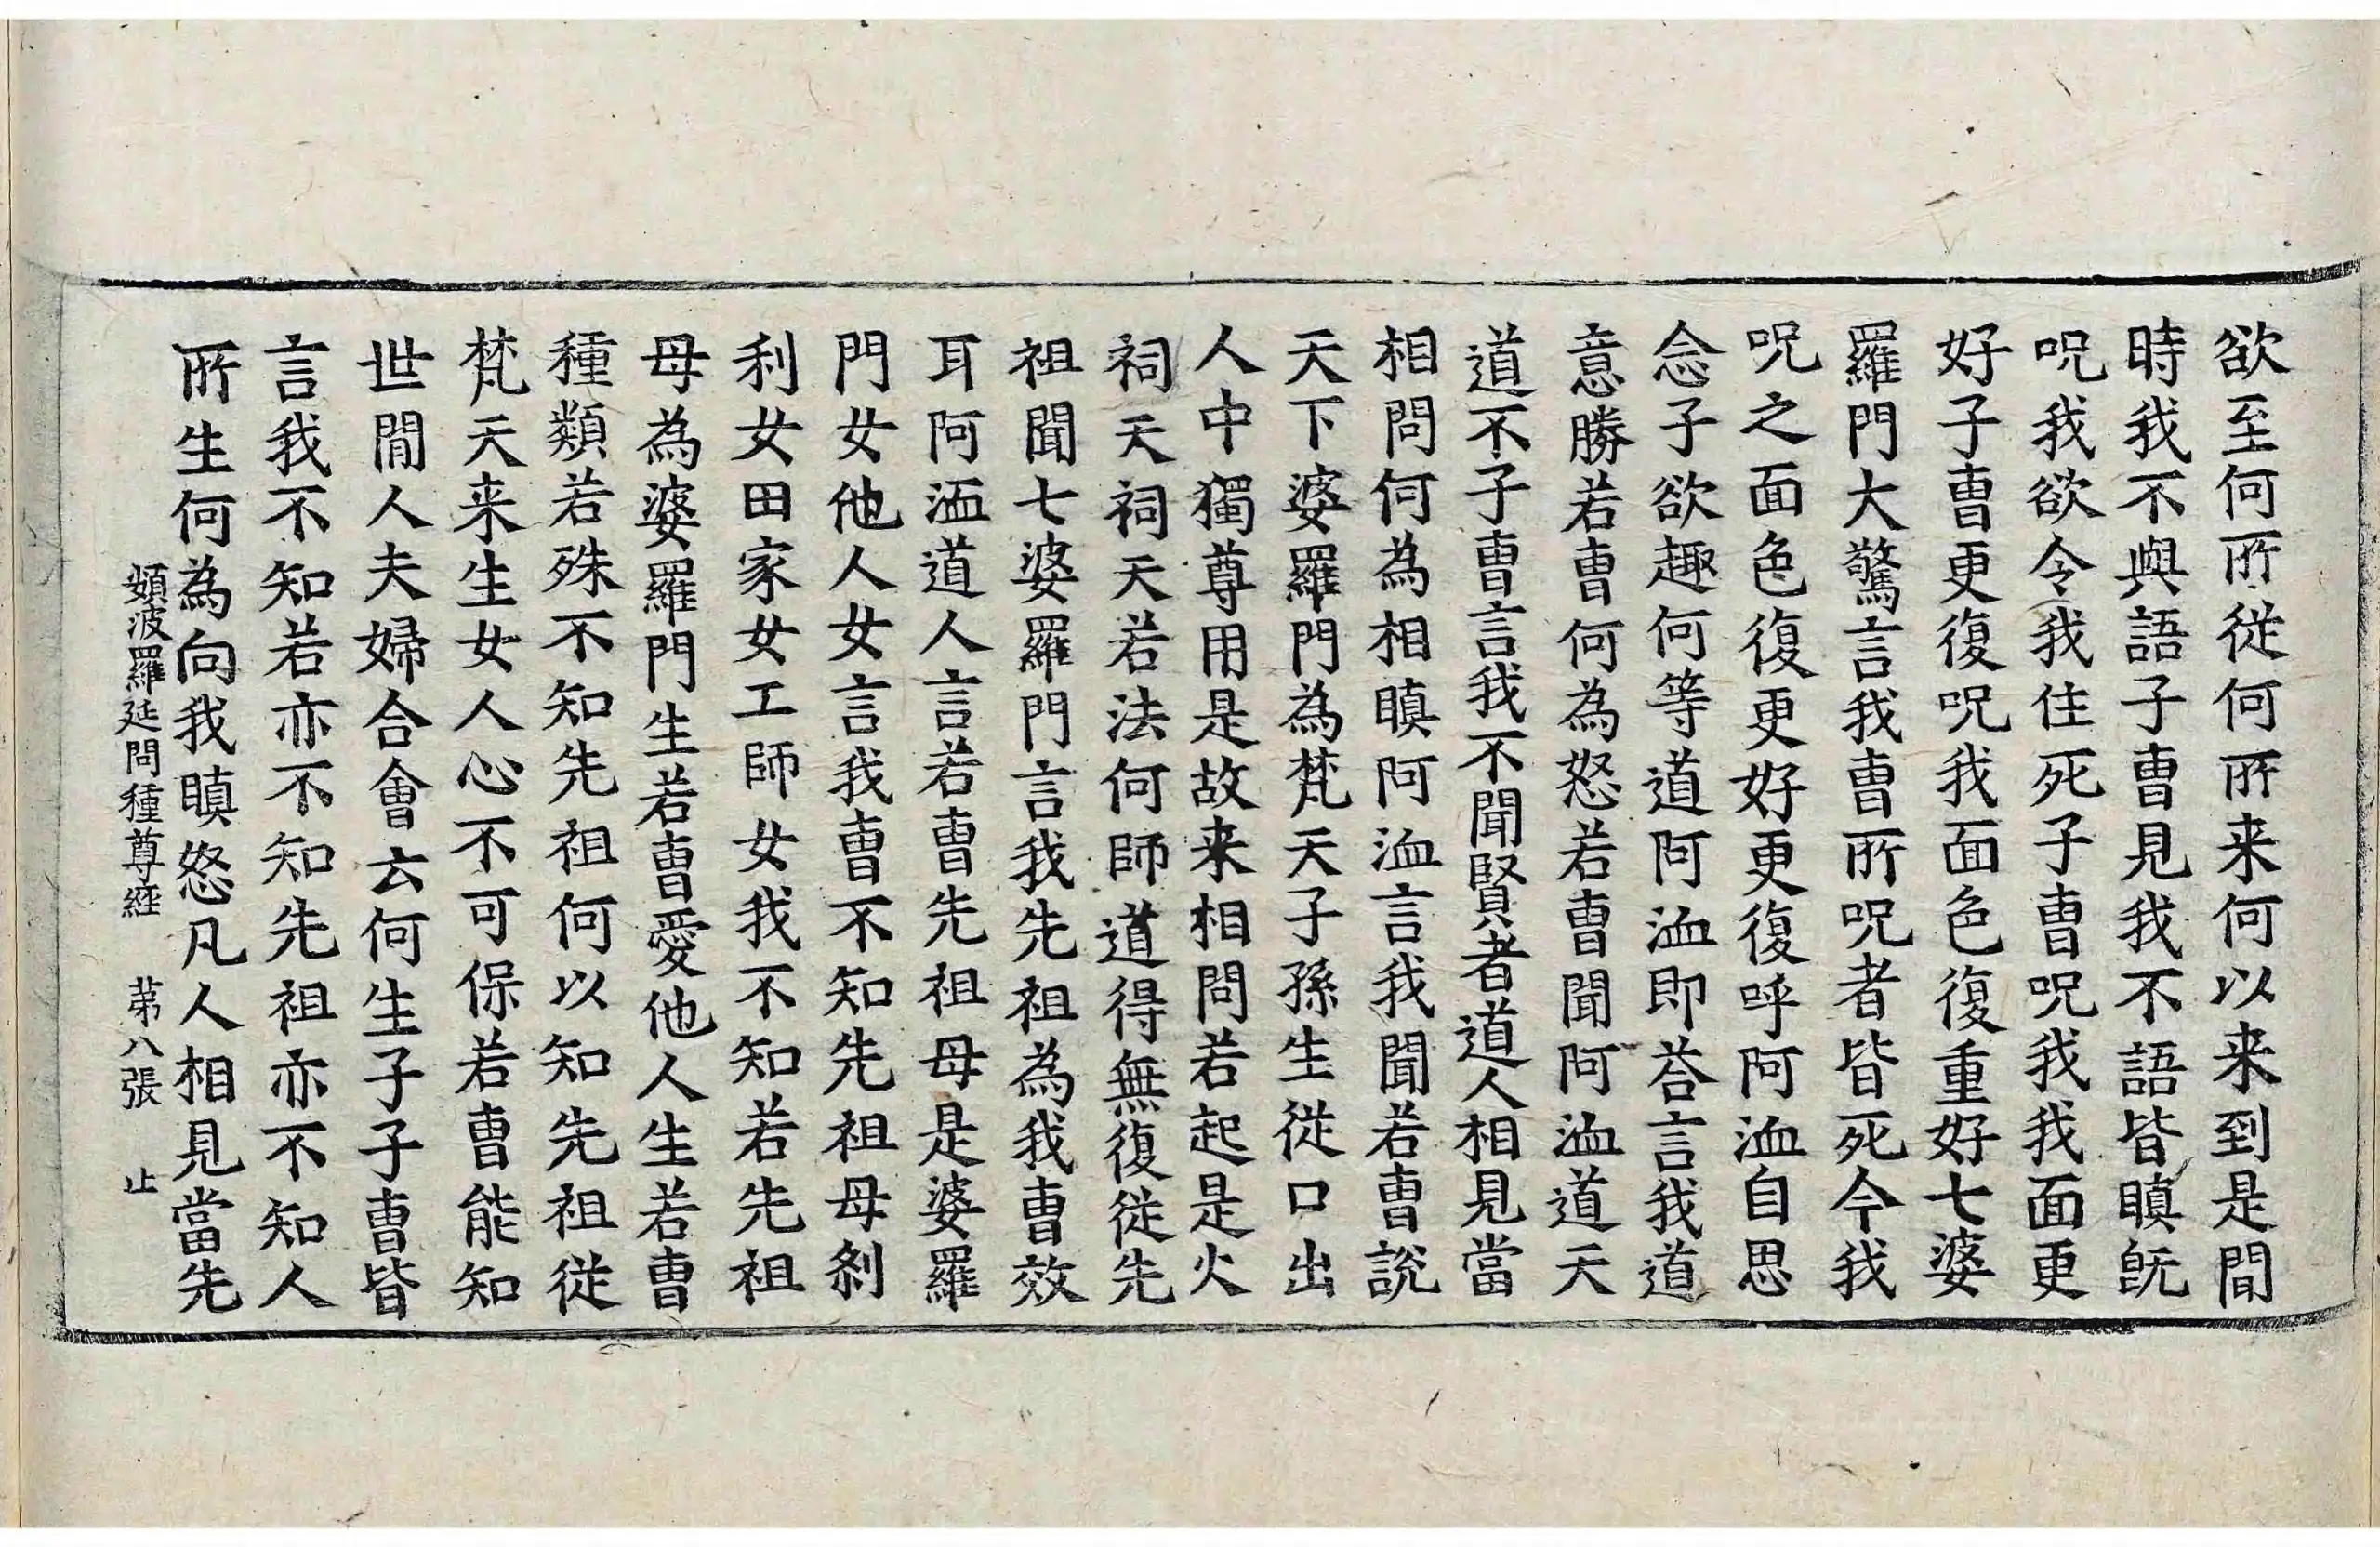 欲至何所從何所来何以来到是間
時我不與語子曺見我不語皆瞋旣
呪我欲令我住死子曺呪我我面更
好子曺更復呪我面色復重好七婆
羅門大驚言我曺所呪者皆死今我
呪之面色復更好更復呼阿洫自思
念子欲趣何等道阿洫即荅言我道
意勝若曺何為怒若曺聞阿洫道天
道不子曺言我不聞賢者道人相見當
相問何為相瞋阿洫言我聞若曺說
天下婆羅門為梵天子孫生從口出
人中獨尊用是故来相問若起是火
祠天祠天若法何師道得無復從先
祖聞七婆羅門言我先祖為我曺效
耳阿洫道人言若曺先祖母是婆羅
門女他人女言我曺不知先祖母剎
利女田家女工師女我不知若先祖
母為婆羅門生若曺愛他人生若曺
種類若殊不知先祖何以知先祖從
梵天来生女人心不可保若曺能知
世閒人夫婦合會云何生子子曺皆
言我不知若亦不知先祖亦不知人
所生何為向我瞋怒凡人相見當先
頞波羅延問種尊經 苐八張 止